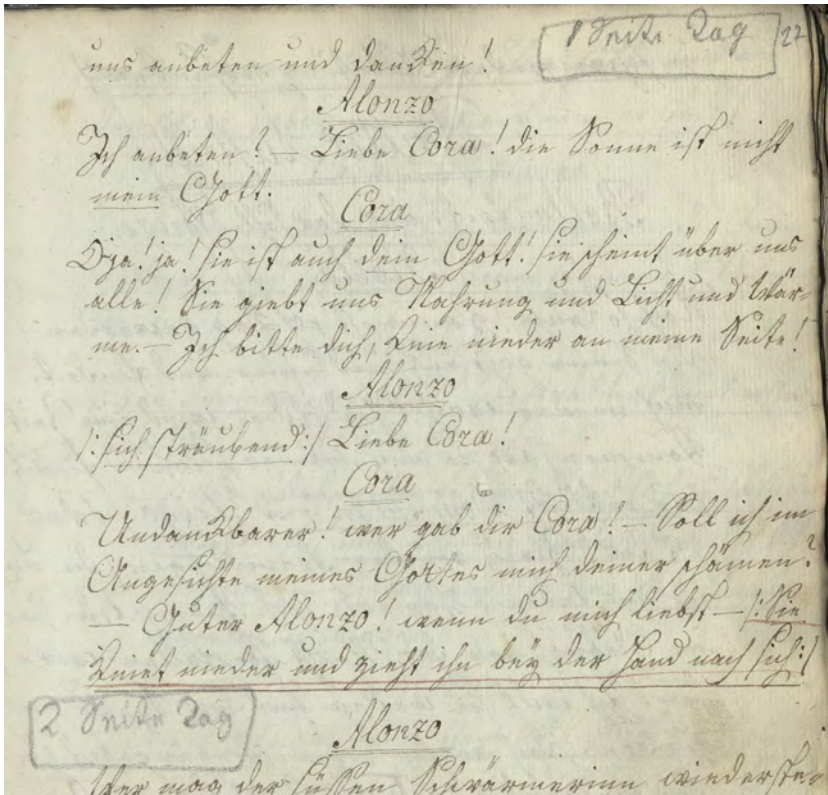 1 Seite Tag 22
uns anbeten und danken!
Alonzo
Ich anbeten? — Liebe Cora! die Sonne ist nicht
mein Gott.
Cora
O ja! ja! sie ist auch dein Gott! sie scheint über uns
alle! Sie giebt uns Nahrung und Licht und Wär-
me. — Ich bitte dich, knie nieder an meine Seite!
Alonzo
/: sich sträubend :/ Liebe Cora!
Cora
Undankbarer! wer gab dir Cora? — Soll ich im
Angesichte meines Gottes mich deiner schämen?
— Guter Alonzo! wenn du mich liebst — /: Sie
kniet nieder und zieht ihn bey der Hand nach sich :/
2 Seite Tag
Alonzo
Wer mag der süssen Schwärmerinn wiederste-